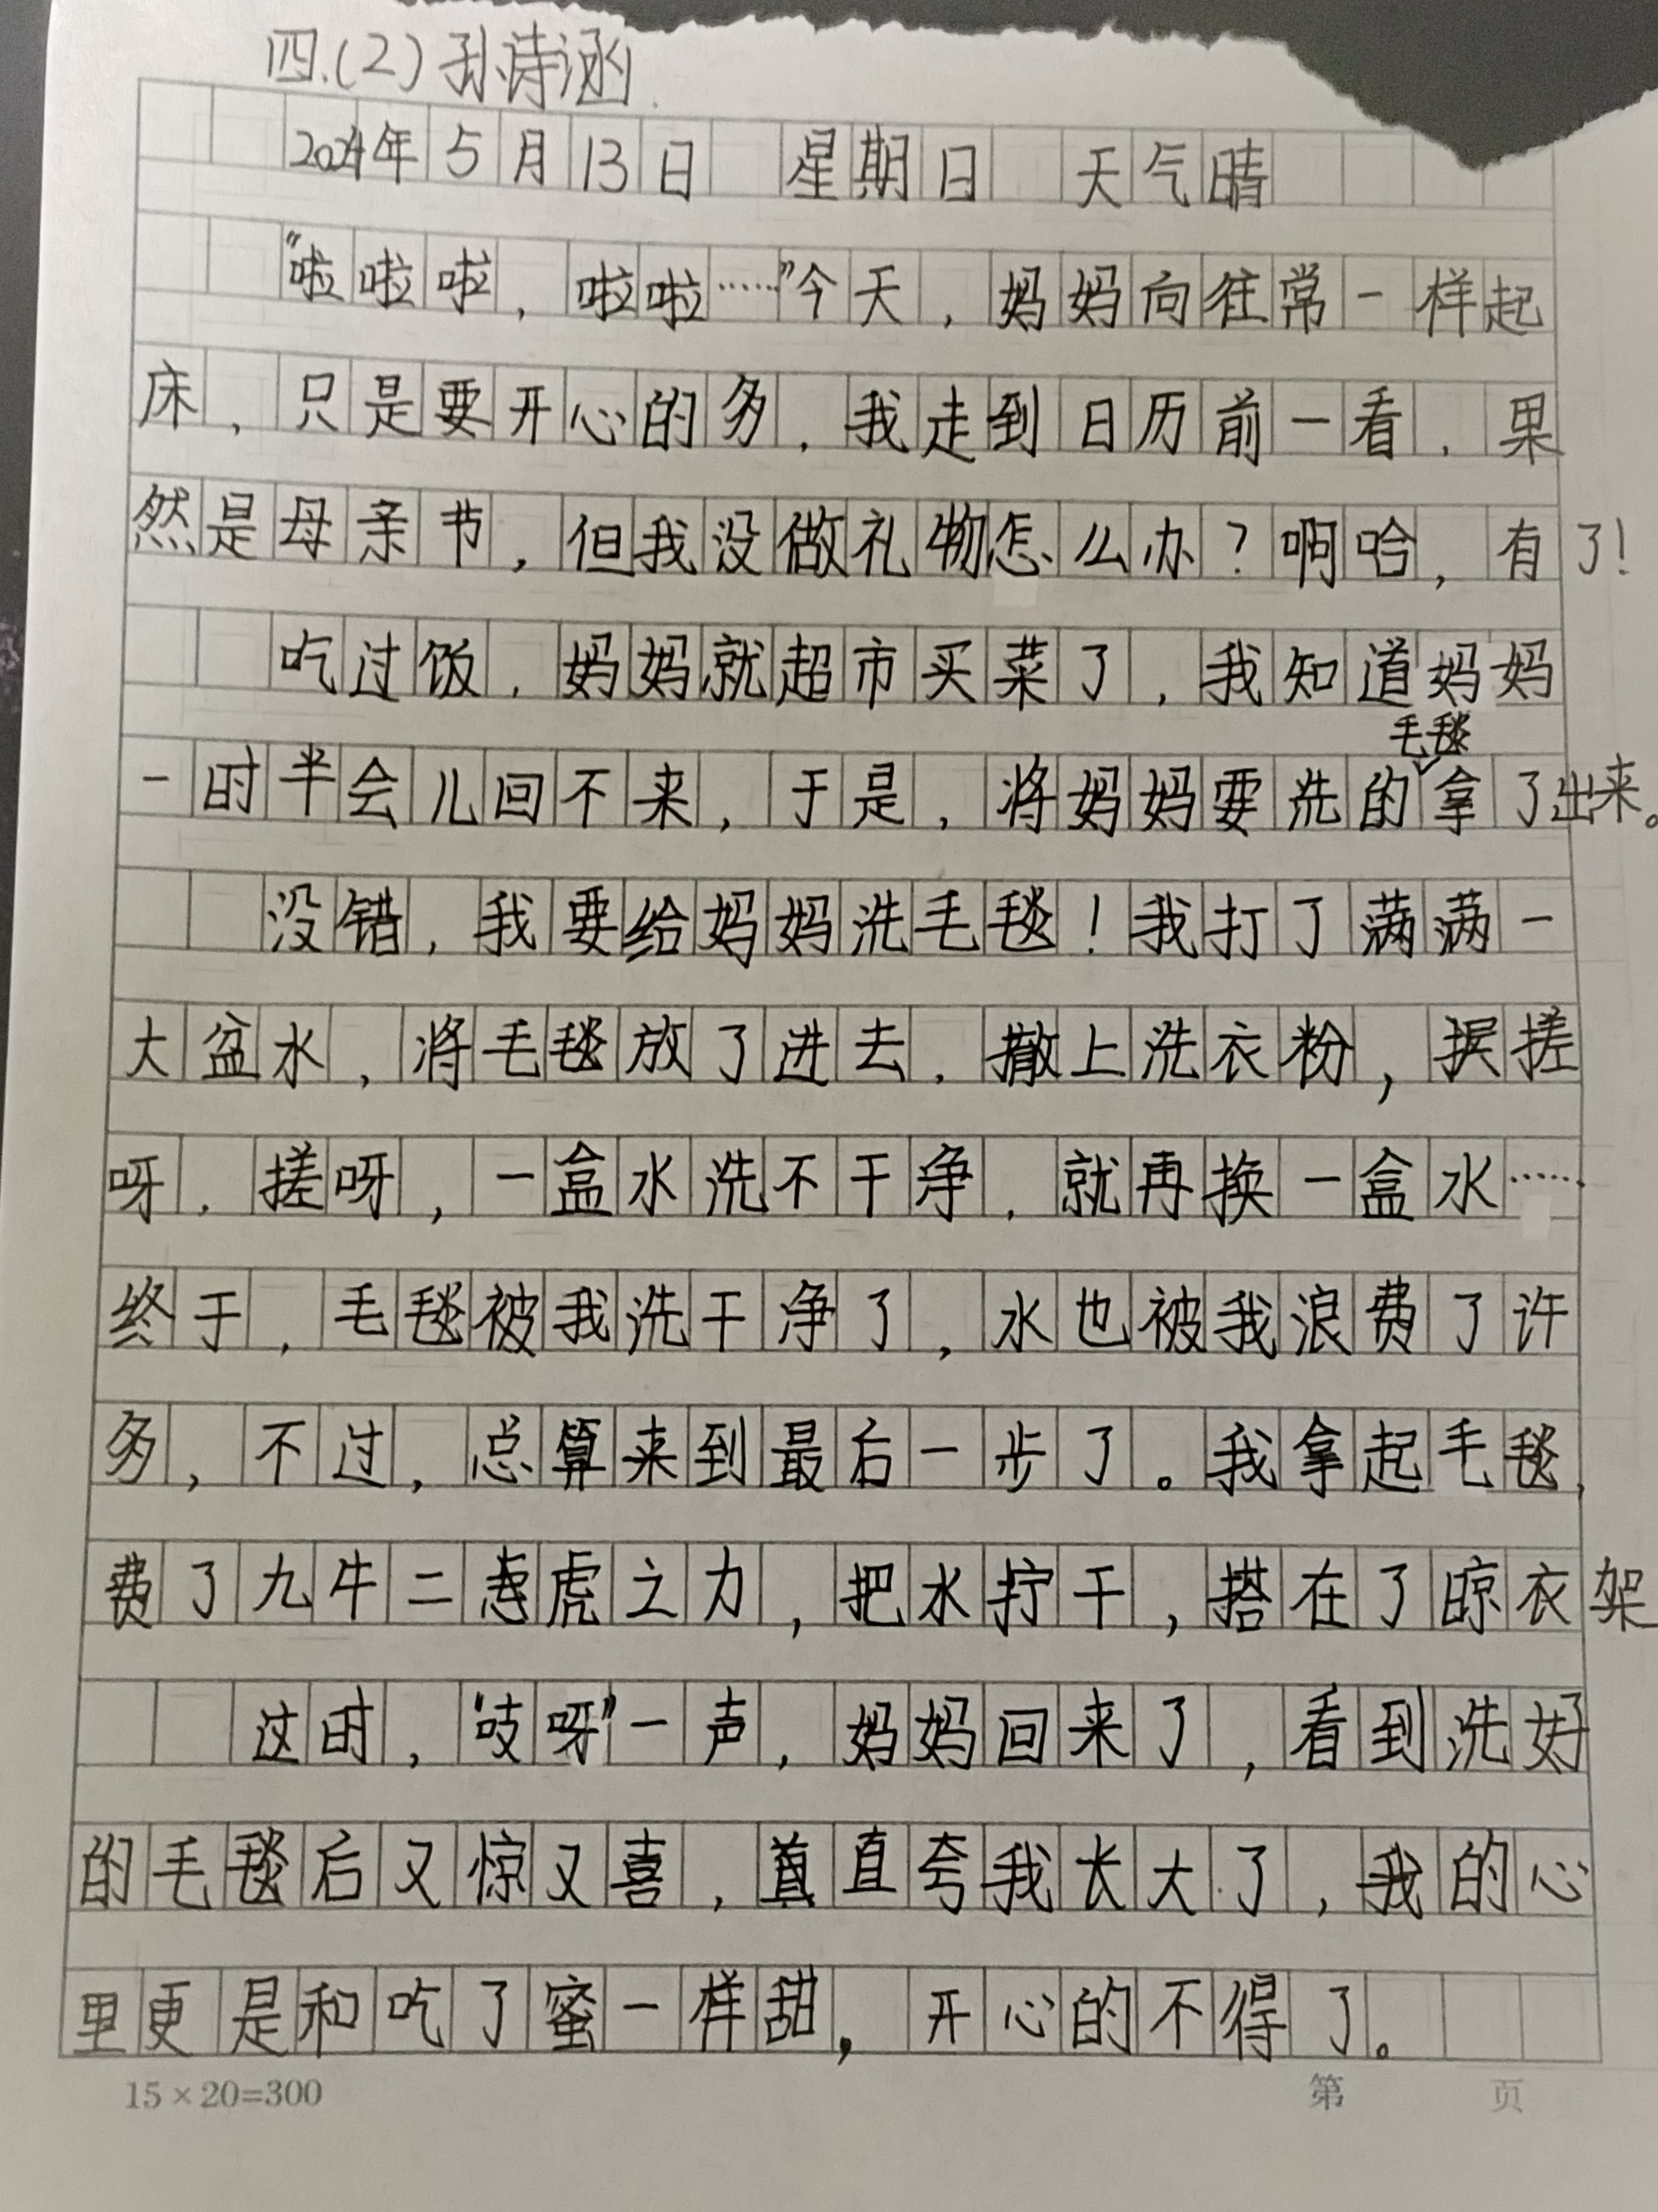 四.(2)孙诗涵
2024年5月13日 星期日 天气晴
“啦啦啦，啦啦……”今天，妈妈向往常一样起
床，只是要开心的多，我走到日历前一看，果
然是母亲节，但我没做礼物怎么办？啊哈，有了！
吃过饭，妈妈就超市买菜了，我知道妈妈
一时半会儿回不来，于是，将妈妈要洗的毛毯拿了出来。
没错，我要给妈妈洗毛毯！我打了满满一
大盆水，将毛毯放了进去，撒上洗衣粉，搓
呀，搓呀，一盒水洗不干净，就再换一盒水……
终于，毛毯被我洗干净了，水也被我浪费了许
多，不过，总算来到最后一步了。我拿起毛毯，
费了九牛二虎之力，把水拧干，搭在了晾衣架
这时，“吱呀”一声，妈妈回来了，看到洗好
的毛毯后又惊又喜，直夸我长大了，我的心
里更是和吃了蜜一样甜，开心的不得了。
15×20=300 第 页